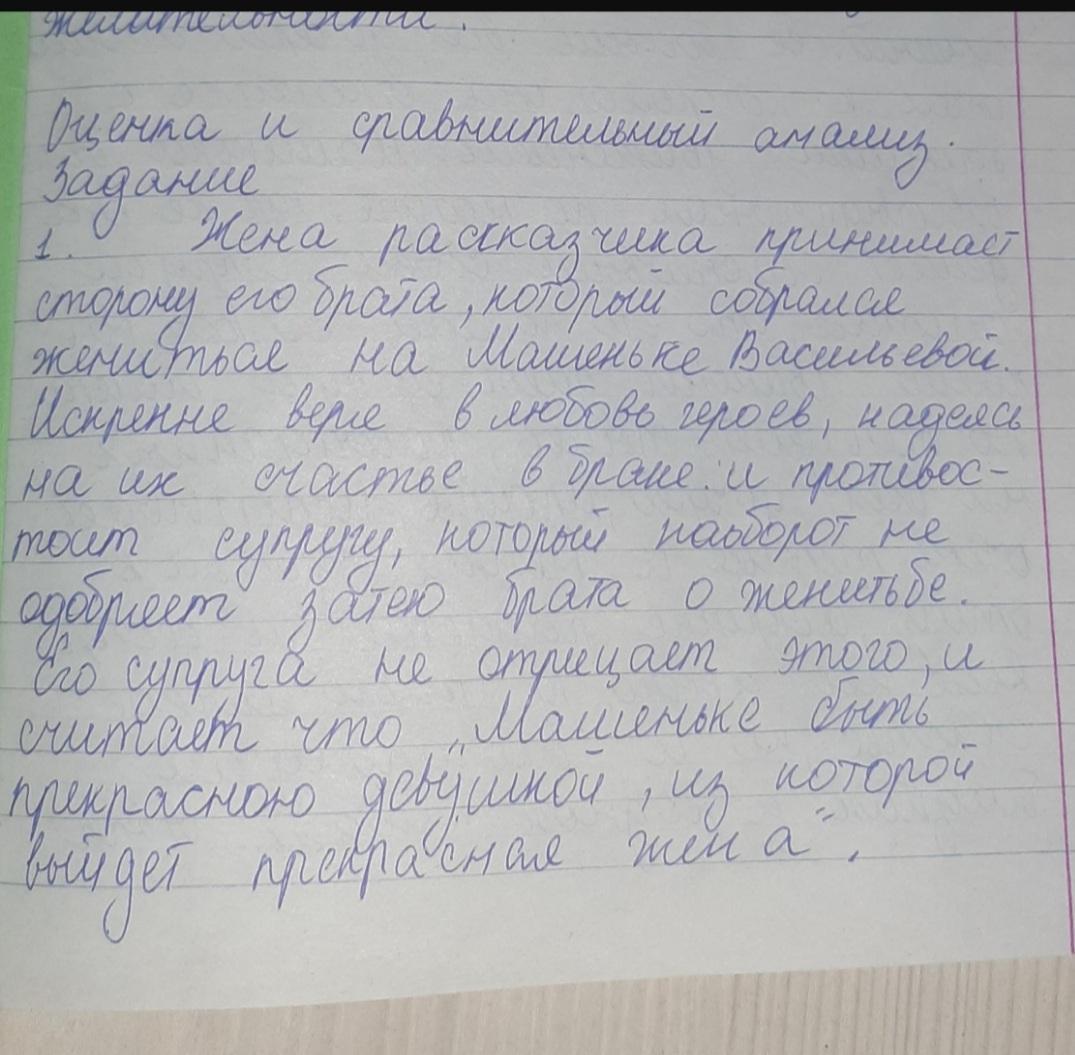 желательности.
Оценка и сравнительный анализ.
Задание
1. Жена рассказчика принимает
сторону его брата, который собрался
жениться на Машеньке Васильевой.
Искренне веря в любовь героев, надеясь
на их счастье в браке и противос-
тоит супругу, который наоборот не
одобряет затею брата о женитьбе.
Его супруга не отрицает этого, и
считает что „Машеньке быть
прекрасною девушкой, из которой
выйдет прекрасная жена".